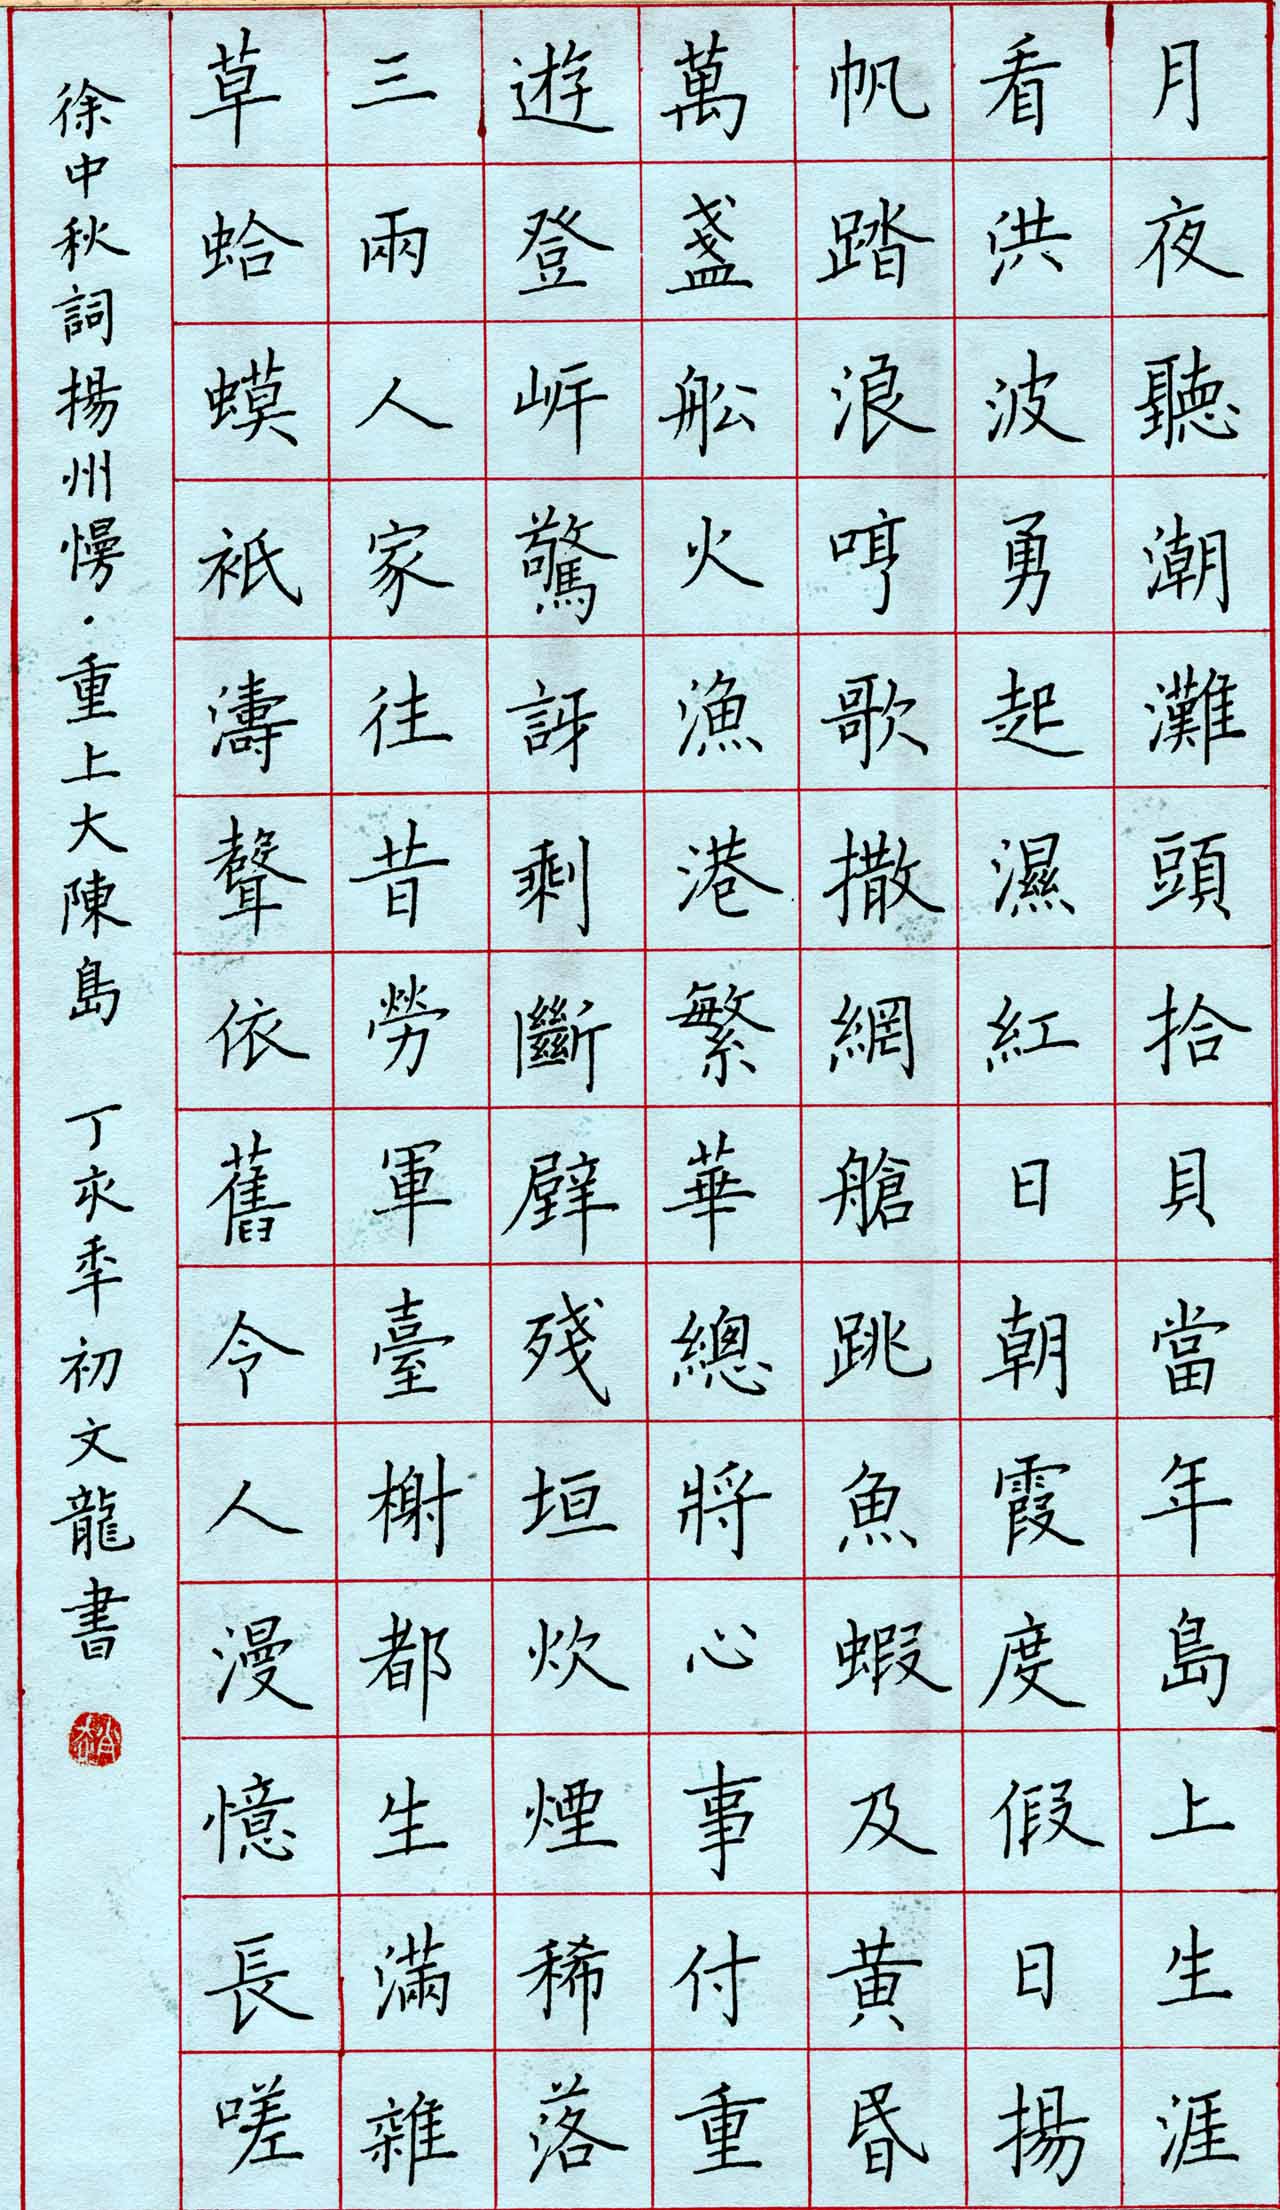 月夜聽潮灘頭拾貝當年島上生涯
看洪波勇起濕紅日朝霞度假日揚
帆踏浪哼歌撒網艙跳魚蝦及黃昏
萬盞舩火漁港繁華總將心事付重
遊登岍驚訝剩斷壁殘垣炊煙稀落
三兩人家往昔勞軍臺榭都生滿雜
草蛤蟆衹濤聲依舊令人漫憶長嗟
徐中秋詞揚州慢·重上大陳島 丁亥年初文龍書